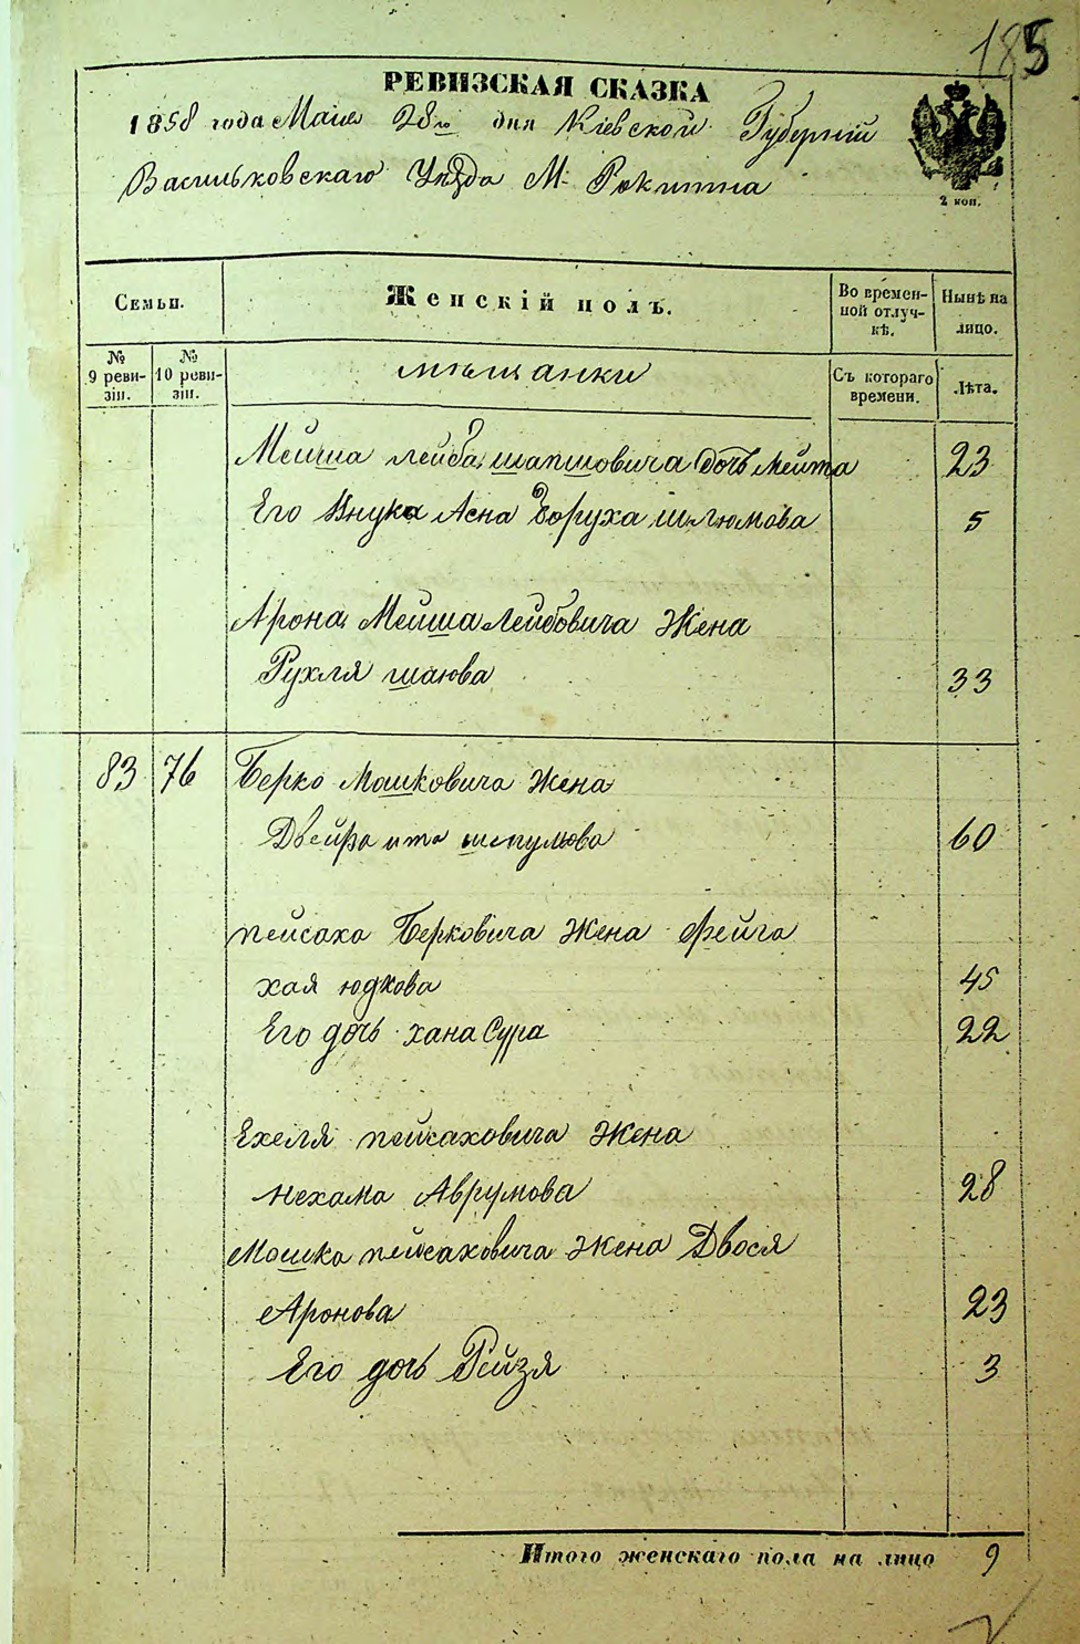 185
РЕВИЗСКАЯ СКАЗКА
1858 года Маия 28го дня Кіевской Губерніи
Васильковскаго Уѣзда М. Рокитна
2 коп.
Семьи.
Женскій полъ.
Во времен-
ной отлуч-
кѣ.
Нынѣ на
лицо.
№
9 реви-
зіи.
№
10 реви-
зіи.
мѣщанки
Съ котораго
времени.
Лѣта.
Мейша Лейба Шапшовича дочь Мейта 23
Его Внука Асна Боруха 5
Арона Мейша Лейбовича Жена
Рухля шаюва 33
83 76 Берко Мошковича Жена
Двейра ита 60
пейсаха Берковича Жена Фейга
хая юдкова 45
Его дочь хана Сура 22
Ехеля пейсаховича Жена
Нехама Аврумова 28
Мошка пейсаховича Жена Двося
Аронова 23
Его дочь Рейзя 3
Итого женскаго пола на лицо 9